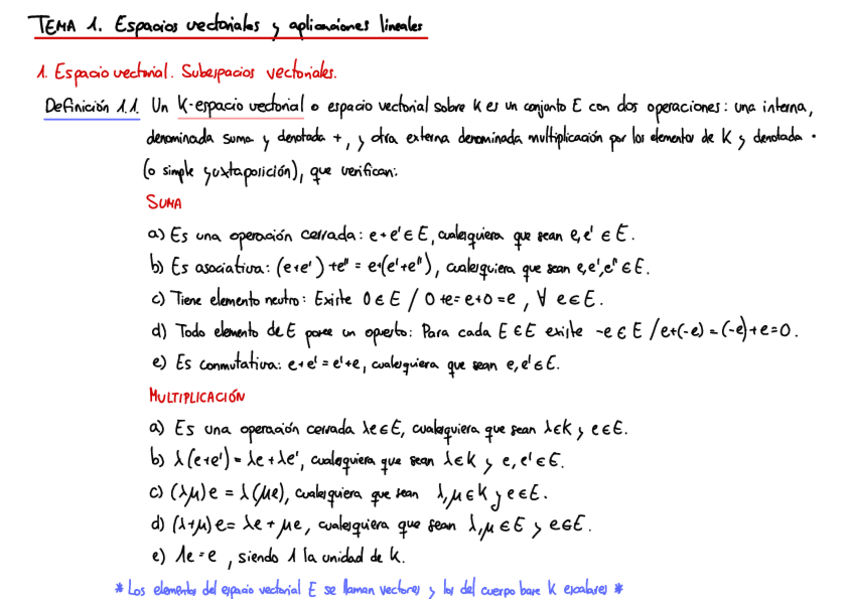 TEMA 1. Espacios vectoriales y aplicaciones lineales
1. Espacio vectorial. Subespacios vectoriales.
Definición 1.1. Un K-espacio vectorial o espacio vectorial sobre K es un conjunto E con dos operaciones: una interna,
denominada suma y denotada +, y otra externa denominada multiplicación por los elementos de K y denotada ·
(o simple yuxtaposición), que verifican:
SUMA
a) Es una operación cerrada: e+e' ∈ E, cualesquiera que sean e,e' ∈ E.
b) Es asociativa: (e+e')+e'' = e+(e'+e''), cualesquiera que sean e,e',e'' ∈ E.
c) Tiene elemento neutro: Existe 0 ∈ E / 0+e = e+0 = e, ∀ e ∈ E.
d) Todo elemento de E posee un opuesto: Para cada E ∈ E existe -e ∈ E / e+(-e) = (-e)+e = 0.
e) Es conmutativa: e+e' = e'+e, cualesquiera que sean e,e' ∈ E.
MULTIPLICACIÓN
a) Es una operación cerrada λe ∈ E, cualesquiera que sean λ ∈ K y e ∈ E.
b) λ(e+e') = λe + λe', cualesquiera que sean λ ∈ K y e,e' ∈ E.
c) (λμ)e = λ(μe), cualesquiera que sean λ,μ ∈ K y e ∈ E.
d) (λ+μ)e = λe + μe, cualesquiera que sean λ,μ ∈ E y e ∈ E.
e) 1e = e, siendo 1 la unidad de K.
* Los elementos del espacio vectorial E se llaman vectores y los del cuerpo base K escalares *